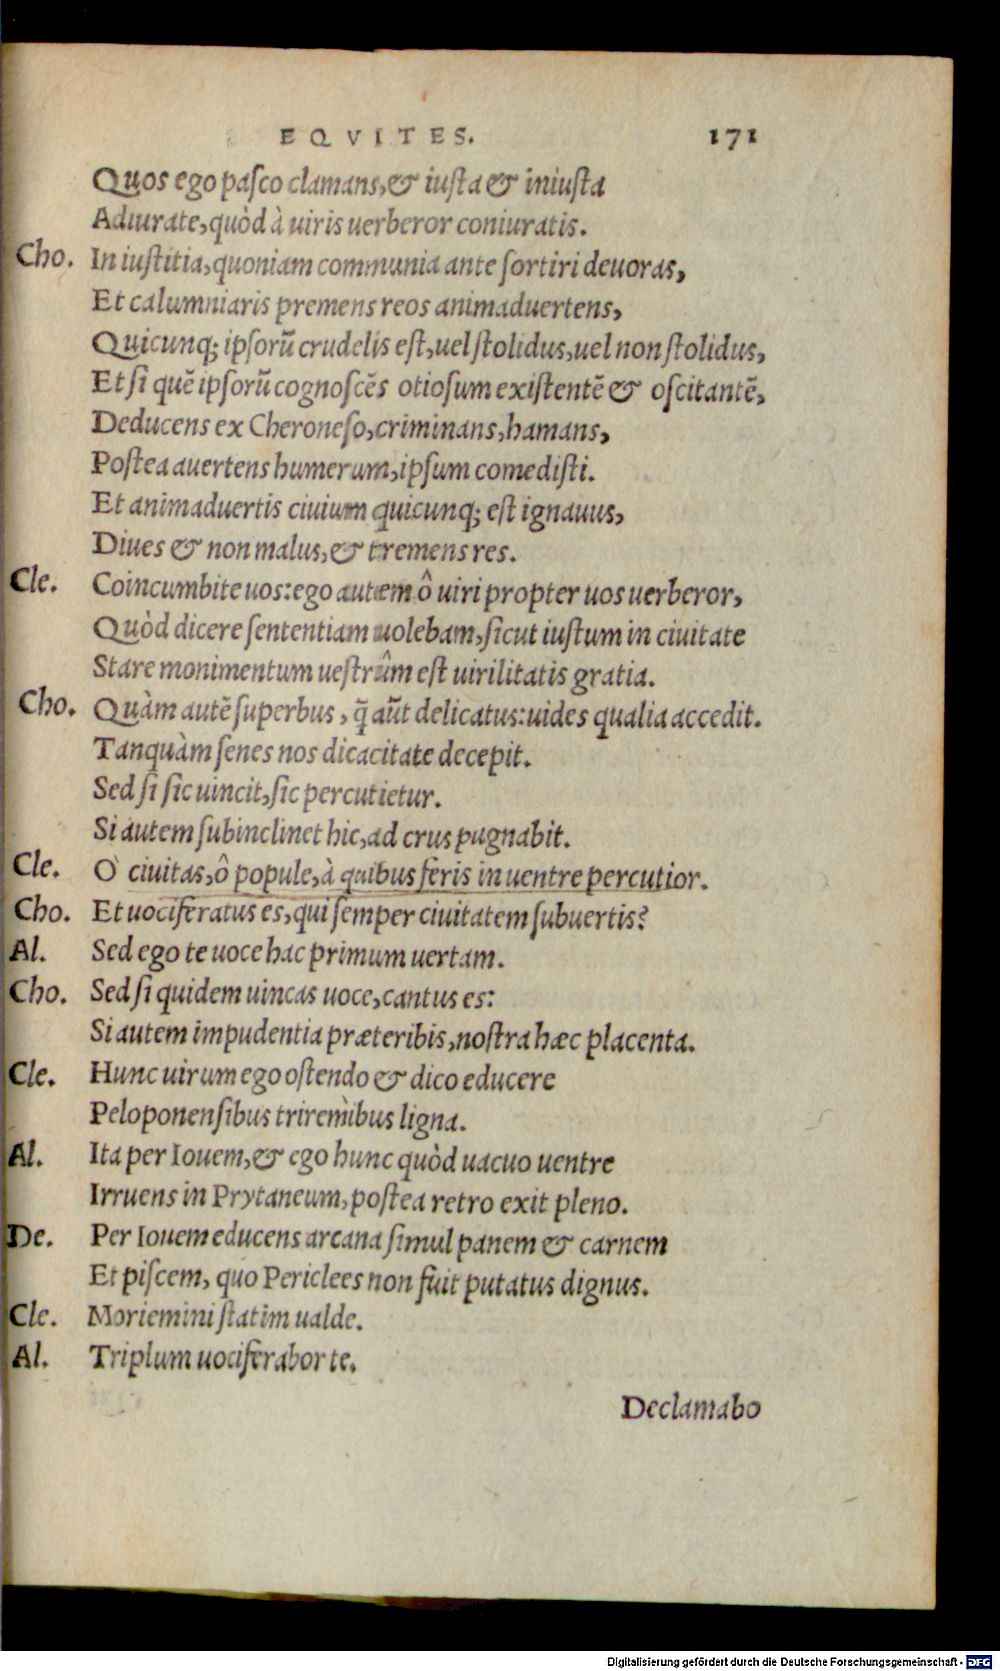 EQVITES. 171
Quos ego pasco clamans,& iusta & iniusta
Adiurate,quòd à uiris uerberor coniuratis.
Cho. In iustitia,quoniam communia ante sortiri deuoras,
Et calumniaris premens reos animaduertens,
Quicunq; ipsorũ crudelis est,uel stolidus,uel non stolidus,
Et si quẽ ipsorũ cognoscẽs otiosum existentẽ & oscitantẽ,
Deducens ex Cheroneso,criminans,hamans,
Postea auertens humerum,ipsum comedisti.
Et animaduertis ciuium quicunq; est ignauus,
Diues & non malus,& tremens res.
Cle. Coincumbite uos:ego autem ô uiri propter uos uerberor,
Quòd dicere sententiam uolebam,sicut iustum in ciuitate
Stare monimentum uestrûm est uirilitatis gratia.
Cho. Quàm autẽ superbus, q̃ aũt delicatus:uides qualia accedit.
Tanquàm senes nos dicacitate decepit.
Sed si sic uincit,sic percutietur.
Si autem subinclinet hic,ad crus pugnabit.
Cle. O ciuitas,ô popule,à quibus feris in uentre percutior.
Cho. Et uociferatus es,qui semper ciuitatem subuertis?
Al. Sed ego te uoce hac primum uertam.
Cho. Sed si quidem uincas uoce,cantus es:
Si autem impudentia præteribis,nostra hæc placenta.
Cle. Hunc uirum ego ostendo & dico educere
Peloponensibus triremibus ligna.
Al. Ita per Iouem,& ego hunc quòd uacuo uentre
Irruens in Prytaneum,postea retro exit pleno.
De. Per Iouem educens arcana simul panem & carnem
Et piscem, quo Periclees non fuit putatus dignus.
Cle. Moriemini statim ualde.
Al. Triplum uociferabor te.
Declamabo
Digitalisierung gefördert durch die Deutsche Forschungsgemeinschaft - DFG